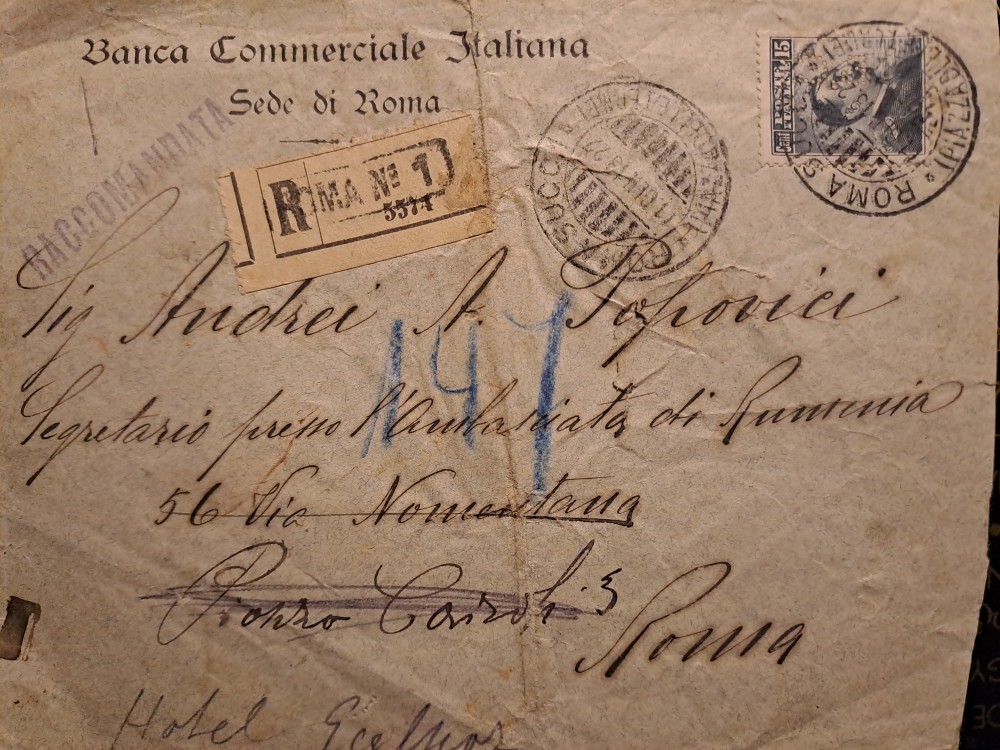 Banca Commerciale Italiana
Sede di Roma
RACCOMANDATA
R ROMA Nº 1
5574
15
ROMA SUCC
ROMA
Sig Andrei A. Popovici
147
Segretario presso l'Ambasciata di Rumenia
56 Via Nomentana
3
Roma
Hotel